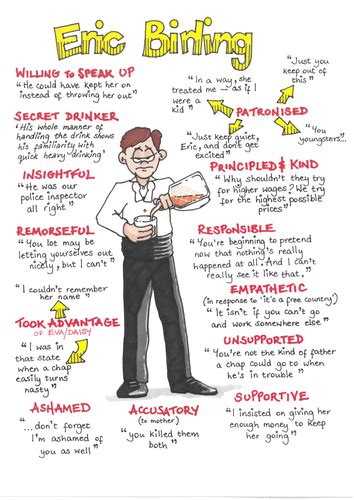 Eric Birling
WILLING to SPEAK UP
"He could have kept her on
instead of throwing her out"
SECRET DRINKER
'His whole manner of
handling the drink shows
his familiarity with
quick heavy drinking'
INSIGHTFUL
"He was our
police inspector
all right"
REMORSEFUL
"You lot may be
letting yourselves out
nicely, but I can't"
"I couldn't remember
her name"
TOOK ADVANTAGE
OF EVA/DAISY
"I was in
that state
when a chap
easily turns
nasty"
ASHAMED
"...don't forget
I'm ashamed of
you as well"
ACCUSATORY
(to mother)
"you killed them
both"
"In a way, she
treated me — as if I
were a
kid"
"Just you
keep out
of this"
PATRONISED
"Just keep quiet,
Eric, and don't get
excited"
"You
youngsters..."
PRINCIPLED & KIND
"Why shouldn't they try
for higher wages? We try
for the highest possible
prices"
RESPONSIBLE
"You're beginning to pretend
now that nothing's really
happened at all. And I can't
really see it like that."
EMPATHETIC
(in response to 'it's a free country')
"It isn't if you can't go
and work somewhere else"
UNSUPPORTED
"You're not the kind of father
a chap could go to when
he's in trouble"
SUPPORTIVE
"I insisted on giving her
enough money to keep
her going"